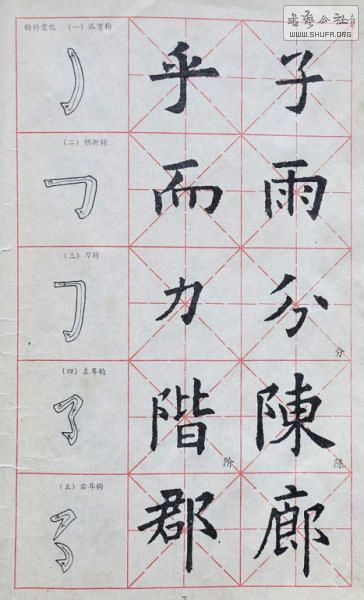 书艺公社
WWW.SHUFA.ORG
钩的变化 (一) 弧弯钩
乎 子
(二) 横折钩
而 雨
(三) 刀钩
力 分
分
(四) 左耳钩
階 陳
阶 陈
(五) 右耳钩
郡 廊
7